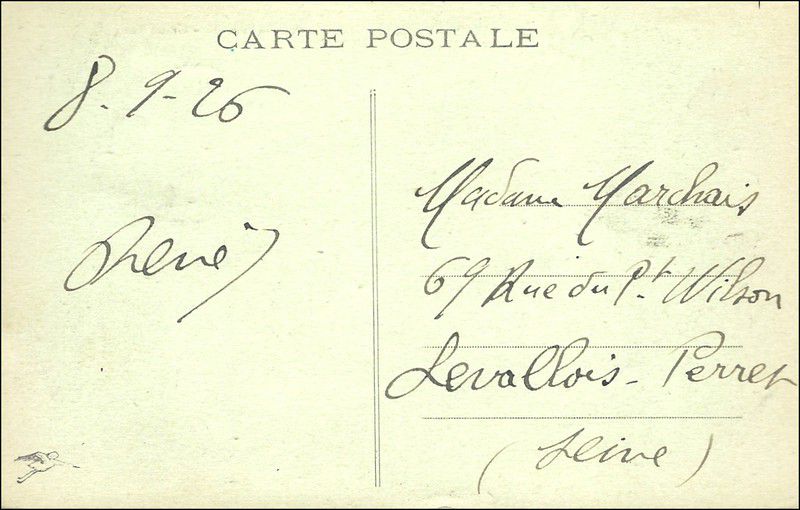 CARTE POSTALE
8-9-26
René
Madame Marchais
69 Rue du Pt. Wilson
Levallois-Perret
(Seine)